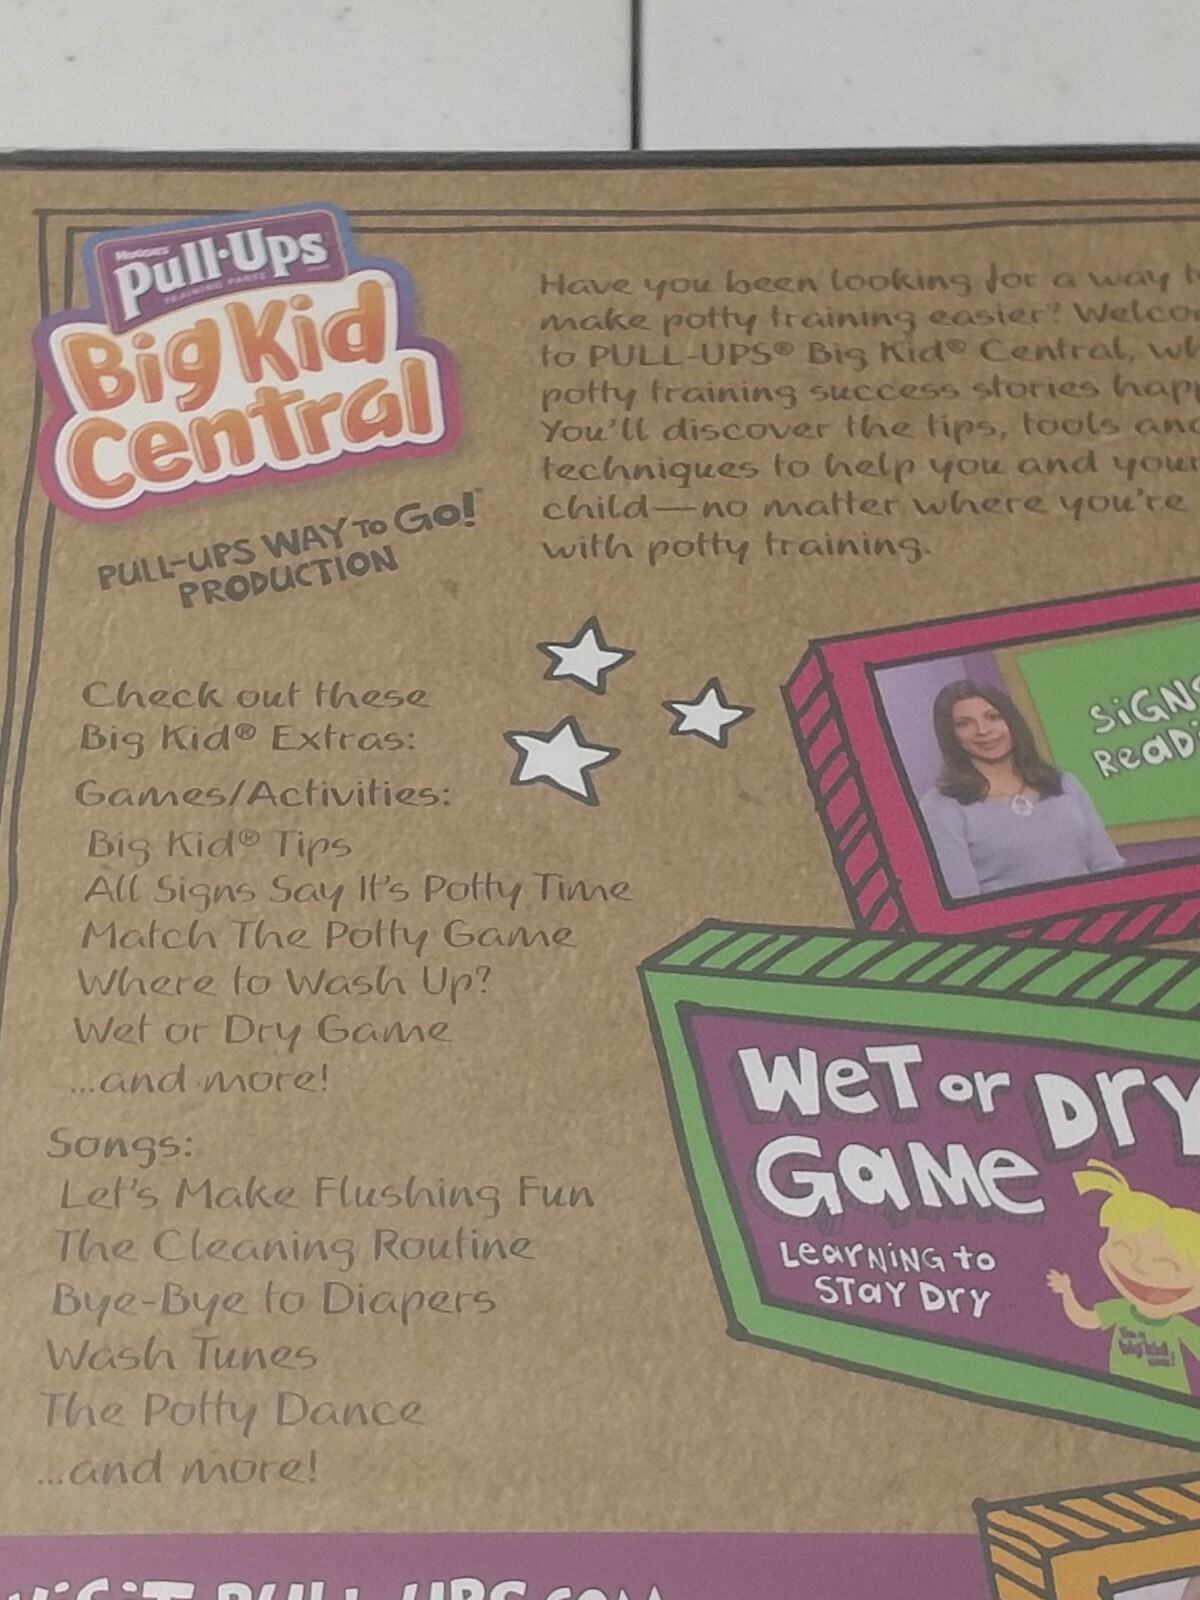 HUGGIES
Pull-Ups
TRAINING PANTS
Big Kid
Central
PULL-UPS WAY TO GO!
PRODUCTION
Have you been looking for a way
make potty training easier?
to PULL-UPS® Big Kid® Central,
potty training success stories
You'll discover the tips, tools and
techniques to help you and your
child—no matter where you're
with potty training.
Check out these
Big Kid® Extras:
Games/Activities:
Big Kid® Tips
All Signs Say It's Potty Time
Match The Potty Game
Where to Wash Up?
Wet or Dry Game
...and more!
Songs:
Let's Make Flushing Fun
The Cleaning Routine
Bye-Bye to Diapers
Wash Tunes
The Potty Dance
...and more!
SiGNS
WeT or DRY
GaMe
LearNiNG to
STay DRy
I'm a
big kid
now!
ViSiT PULL-UPS.COM